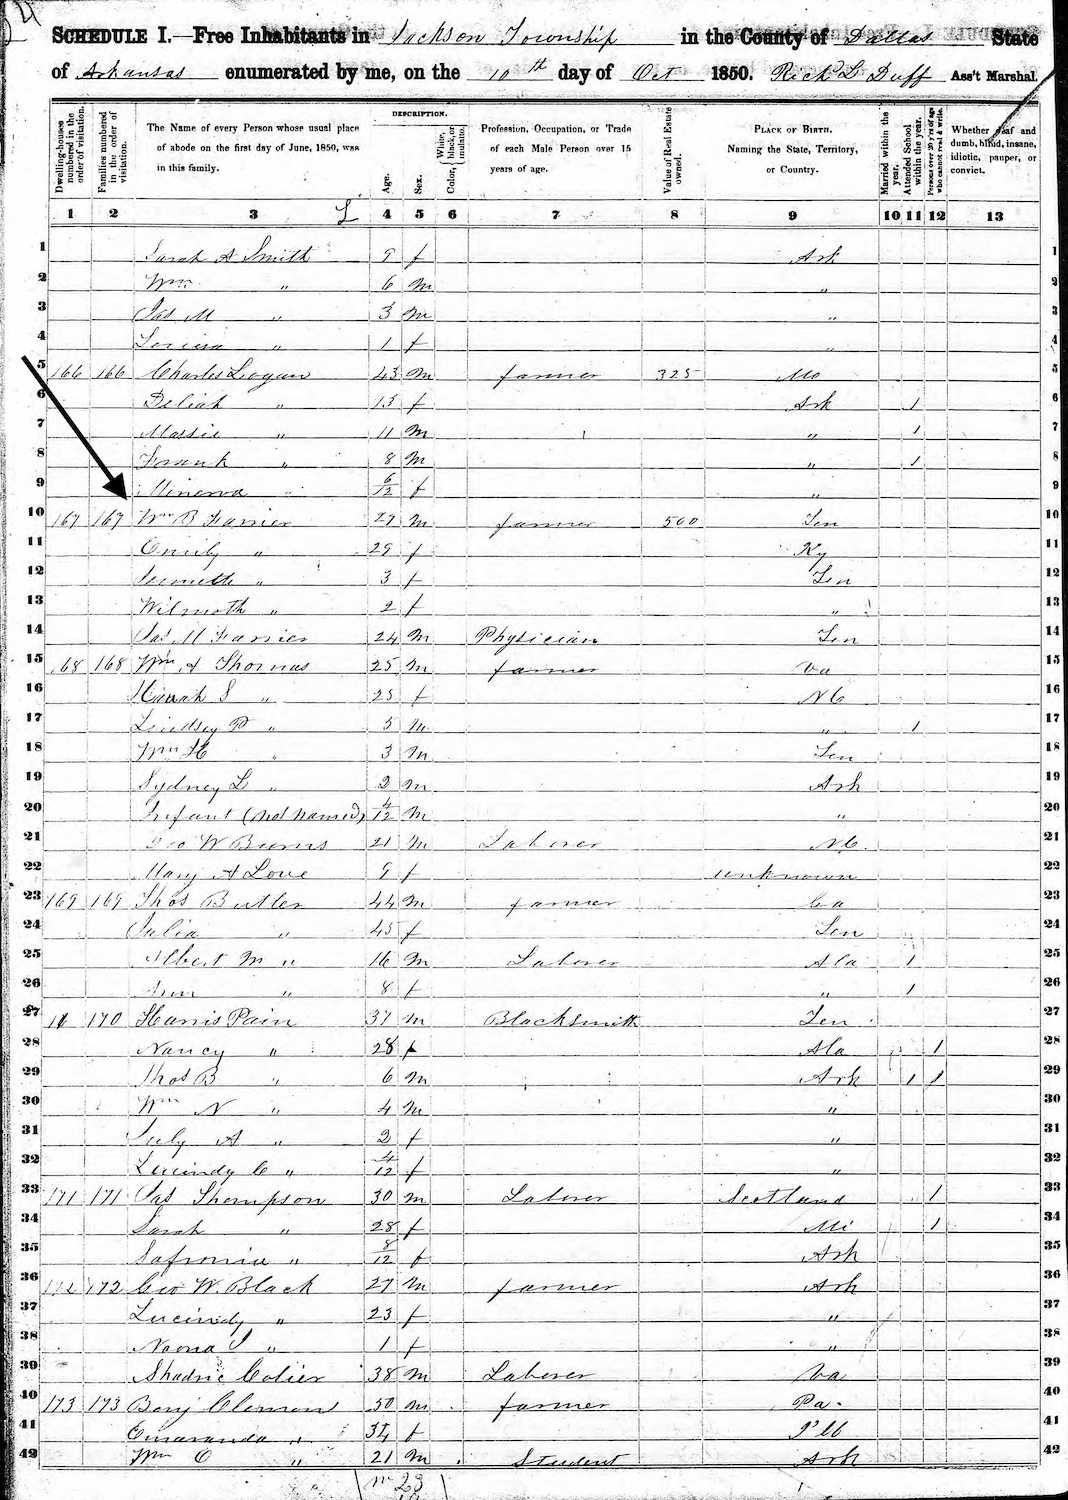 SCHEDULE I.—Free Inhabitants in Jackson Township in the County of Dallas State
of Arkansas enumerated by me, on the 10th day of Oct 1850. Rich L Duff Ass't Marshal.
Dwelling-houses numbered in the order of visitation.
Families numbered in the order of visitation.
The Name of every Person whose usual place of abode on the first day of June, 1850, was in this family.
DESCRIPTION.
Age.
Sex.
Color, { White, black, or mulatto.
Profession, Occupation, or Trade of each Male Person over 15 years of age.
Value of Real Estate owned.
PLACE OF BIRTH. Naming the State, Territory, or Country.
Married within the year.
Attended School within the year.
Persons over 20 y'rs of age who cannot read & write.
Whether deaf and dumb, blind, insane, idiotic, pauper, or convict.
1 2 3 4 5 6 7 8 9 10 11 12 13
1 Sarah A Smith 9 f Ark 1
2 Wm " 6 m " 2
3 Jas M " 3 m " 3
4 Louisa " 1 f " 4
5 166 166 Charles Logan 43 m farmer 325 Mo 5
6 Deliah " 13 f Ark 1 6
7 Massie " 11 m " 1 7
8 Frank " 8 m " 1 8
9 Minerva " 6/12 f " 9
10 167 167 Wm B Farrier 27 m farmer 500 Ten 10
11 Emily " 29 f Ky 11
12 " 3 f Ten 12
13 Wilmoth " 2 f " 13
14 Jas M Farrier 24 m Physician Ten 14
15 168 168 Wm A Thomas 25 m farmer Va 15
16 S " 25 f NC 16
17 Lindsey P " 5 m " 1 17
18 Wm H " 3 m Ten 18
19 Sydney L " 2 m Ark 19
20 Infant (not named) 4/12 m " 20
21 Geo W Burns 21 m Laborer NC. 21
22 Mary A Love 9 f unknown 22
23 169 169 Thos Butler 44 m farmer 23
24 Julia " 45 f Ten 24
25 Albert M " 16 m Laborer Ala 1 25
26 Ann " 8 f " 1 26
27 170 Harris Pain 37 m Blacksmith Ten 27
28 Nancy " 28 f Ala 1 28
29 Thos B " 6 m Ark 1 1 29
30 Wm N " 4 m " 30
31 July A " 2 f " 31
32 Lucindy C " 4/12 f " 32
33 171 171 Jas Thompson 30 m Laborer Scotland 1 33
34 Sarah " 28 f Mi 1 34
35 Safronia " 8/12 f Ark 35
36 172 172 Geo W. Black 27 m farmer Ark 36
37 Lucindy " 23 f " 37
38 Naona J " 1 f " 38
39 Shadric Colier 38 m Laborer Va 39
40 173 173 Benj Clemens 50 m farmer Pa. 40
41 " 34 f 41
42 Wm C " 21 m Student Ark 42
m 23